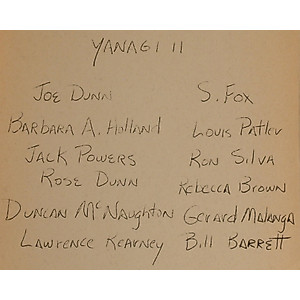 YANAGI II
JOE DUNN S. FOX
BARBARA A. HOLLAND LOUIS PATLER
JACK POWERS RON SILVA
ROSE DUNN REBECCA BROWN
DUNCAN McNAUGHTON GERARD MALANGA
LAWRENCE KEARNEY Bill BARRETT